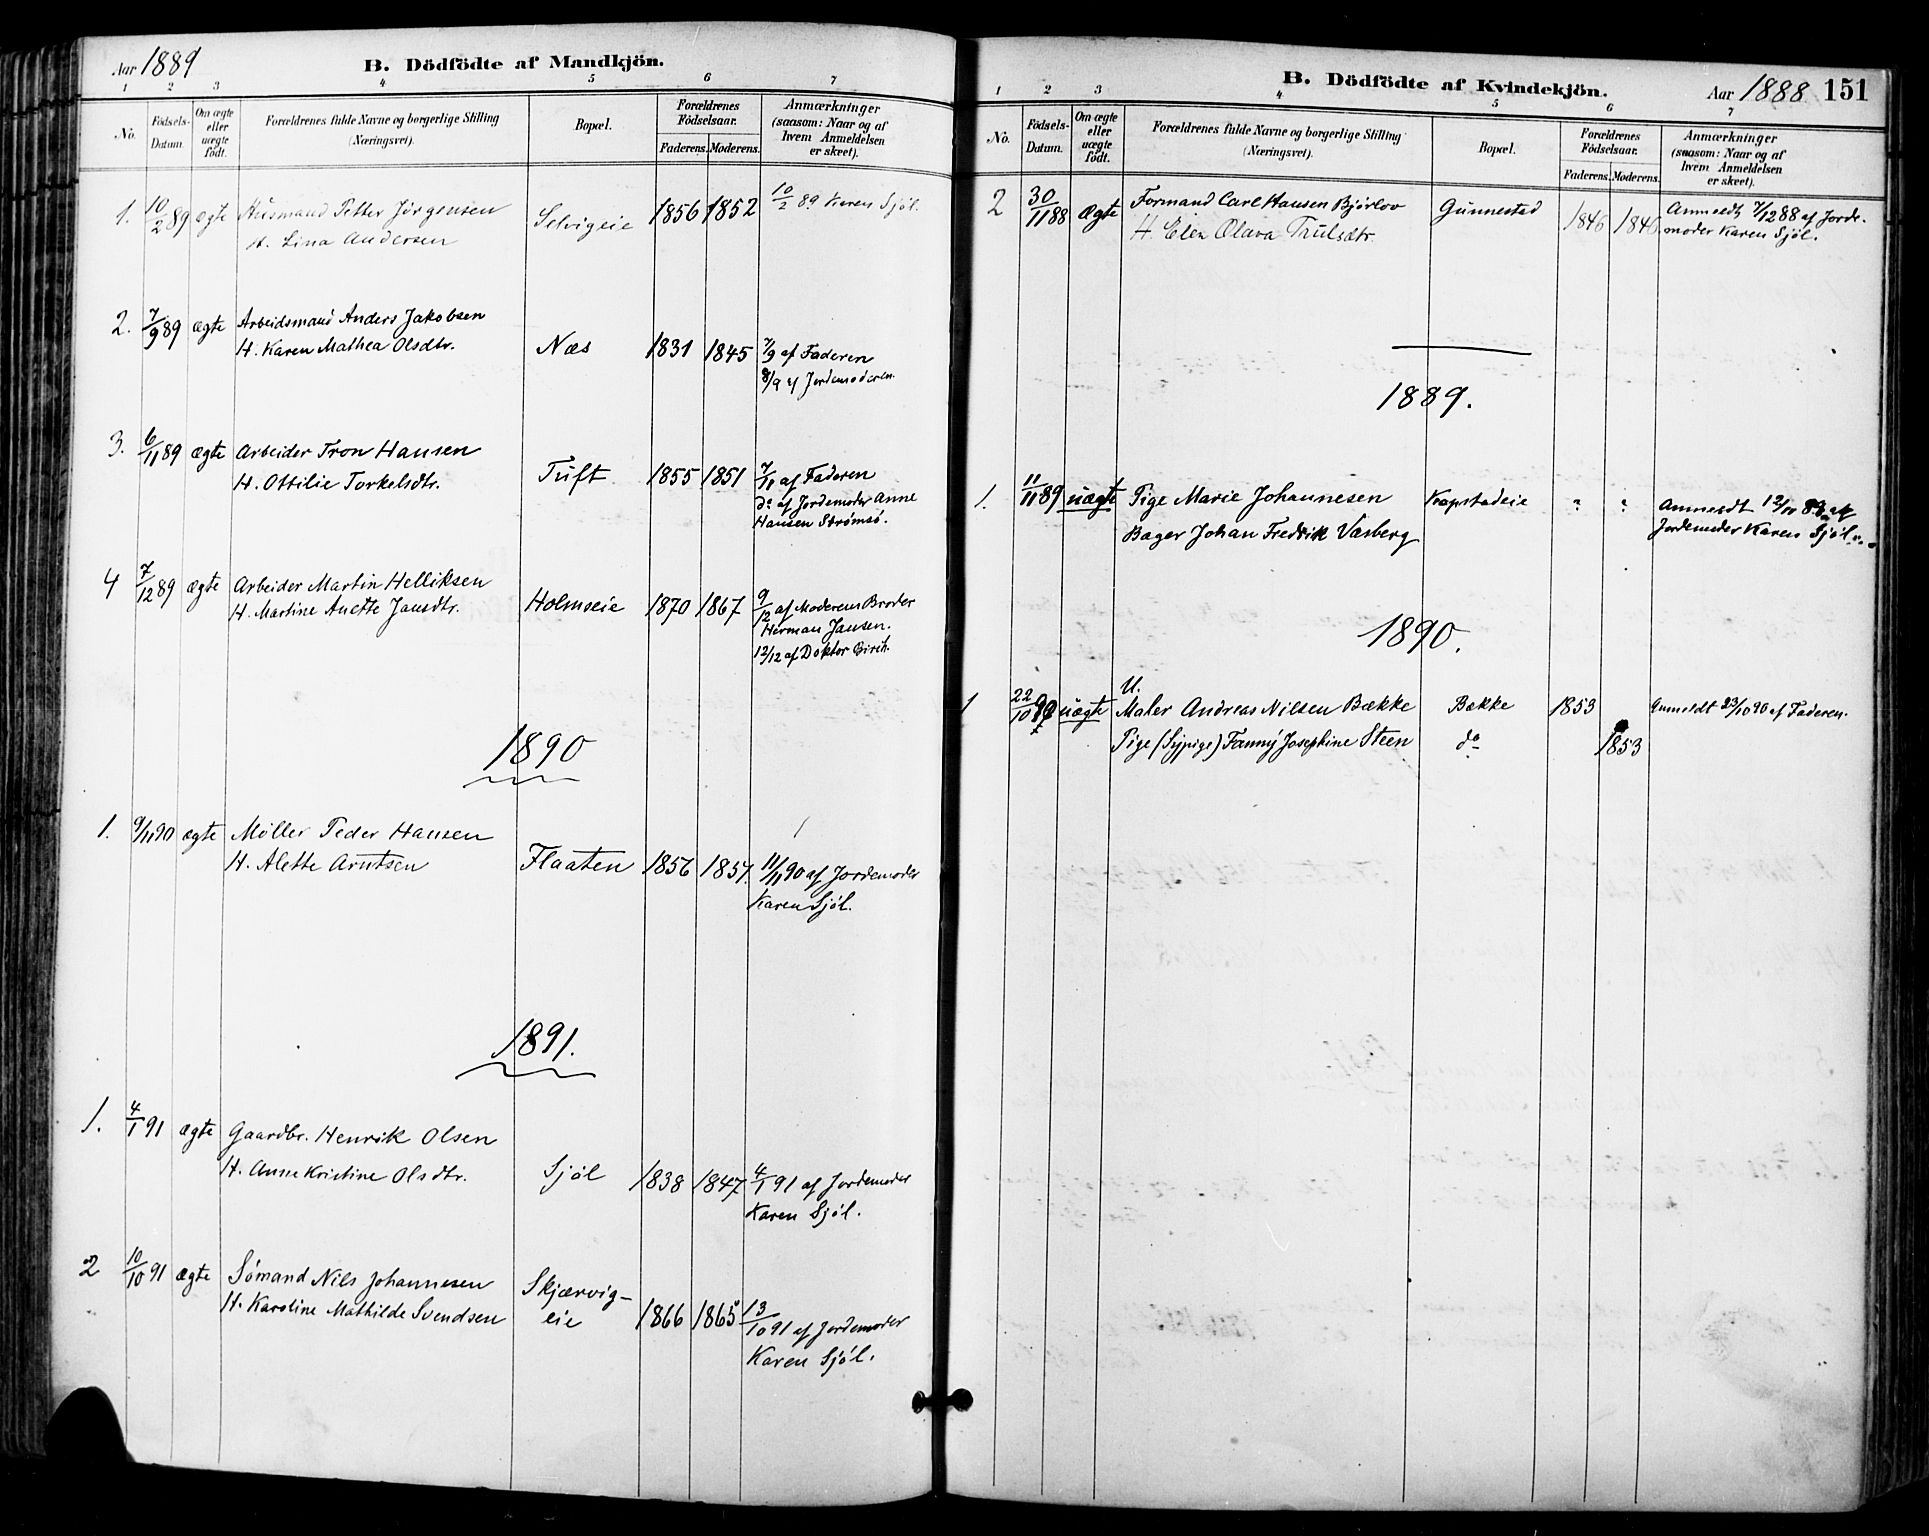 Aar 1889
B. Dödfödte af Mandkjön.
1 2 3 4 5 6 7
No.
Födsels-Datum.
Om ægte eller uægte født.
Forældrenes fulde Navne og borgerlige Stilling
(Næringsvei).
Bopæl.
Forældrenes Födselsaar.
Faderens. Moderens.
Anmærkninger
(saasom: Naar og af
hvem Anmeldelsen
er skeet).
1. 10/2 89 ægte Husmand Petter Jörgensen Selvigeie 1856 1852 10/2 89 Karen Sjöl.
H. Lina Andersen
2. 7/9 89 ægte Arbeidsmand Anders Jakobsen
H. Karen Mathea Olsdtr. Næs 1831 1845 7/9 af Faderen
8/9 af Jordemoderen.
3. 6/11 89 ægte Arbeider Tron Hansen
H. Ottilie Torkelsdtr. Tuft 1855 1851 7/11 af Faderen
do af Jordemoder Anne
Hansen Strömsö.
4 7/12 89 ægte Arbeider Martin Helliksen
H. Martine Anette Jansdtr. Holmseie 1870 1867 9/12 af Moderens Broder
Herman Jansen.
12/12 af Doktor Birch.
1890
1. 9/11 90 ægte Møller Peder Hansen
H. Alette Arntsen Flaaten 1856 1857. 11/11 90 af Jordemoder
Karen Sjöl.
1891.
1. 4/1 91 ægte Gaardbr. Henrik Olsen
H. Anne Kristine Olsdtr. Sjøl 1838 1847 4/1 91 af Jordemoder
Karen Sjöl.
2 10/10 91 ægte Sömand Nils Johannesen Skjærvig-
H. Karoline Mathilde Svendsen eie 1866 1865 13/10 91 af Jordemoder
Karen Sjöl.
B. Dödfödte af Kvindekjön.
Aar 1888 151
1 2 3 4 5 6 7
No.
Födsels-Datum.
Om ægte eller uægte födt.
Forældrenes fulde Navne og borgerlige Stilling
(Næringsvei).
Bopæl.
Forældrenes Födselsaar.
Faderens. Moderens.
Anmærkninger
(saasom: Naar og af
hvem Anmeldelsen
er skeet).
2 30/11 88 Ægte Formand Carl Hansen Björlov Gunnestad 1846 1846 Anmeldt 7/12 88 af Jorde-
H. Elen Olava Trulsdtr. moder Karen Sjöl.
1889.
1. 11/11 89 uægte Pige Marie Johannesen Kopstadeie " " Anmeldt 12/11 89 af
Bager Johan Fredrik Varberg Jordemoder Karen Sjöl.
1890.
U.
1 22/10 90 uægte Maler Andreas Nilsen Bække Bække 1853 Anmeldt 23/10 90 af Faderen.
Pige (Sypige) Fanny Josephine Steen do 1853